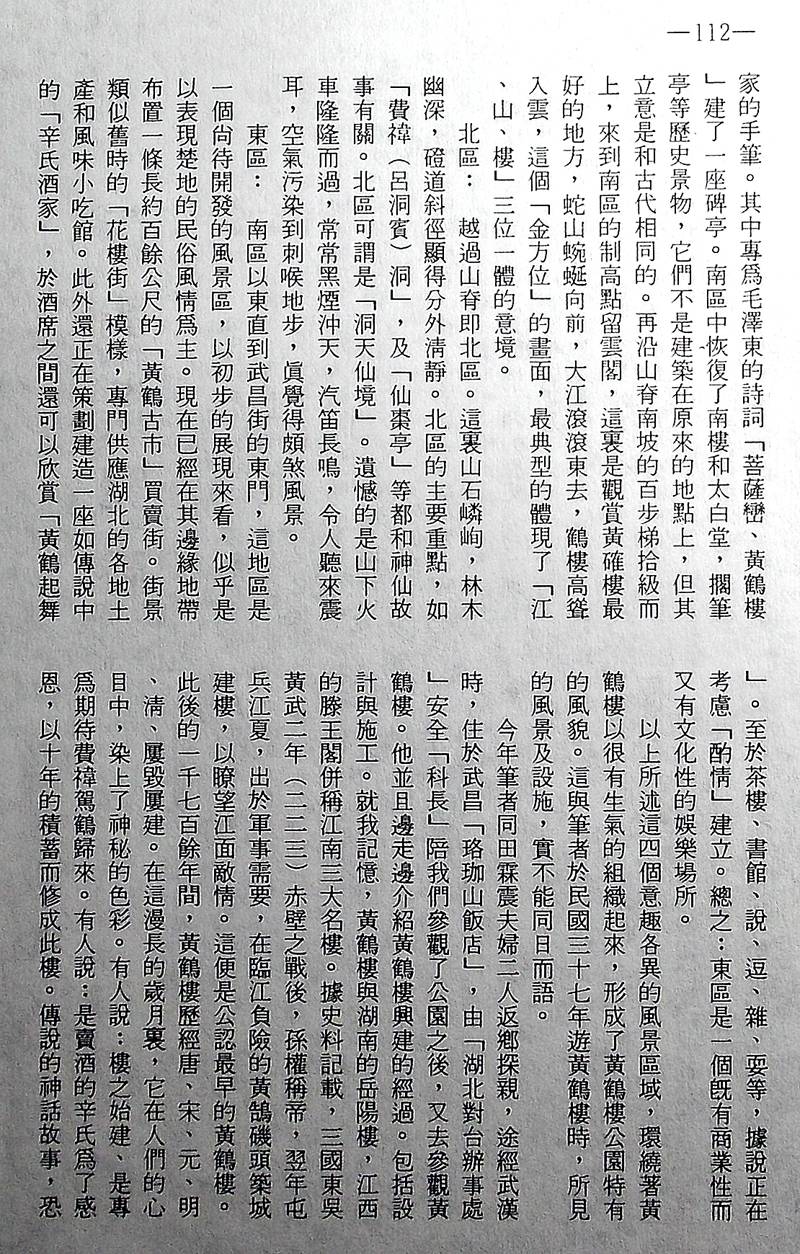 —112—
家的手筆。其中專爲毛澤東的詩詞「菩薩巒、黃鶴樓
」建了一座碑亭。南區中恢復了南樓和太白堂，擱筆
亭等歷史景物，它們不是建築在原來的地點上，但其
立意是和古代相同的。再沿山脊南坡的百步梯拾級而
上，來到南區的制高點留雲閣，這裏是觀賞黃確樓最
好的地方，蛇山蜿蜒向前，大江滾滾東去，鶴樓高聳
入雲，這個「金方位」的畫面，最典型的體現了「江
、山、樓」三位一體的意境。
北區：　越過山脊即北區。這裏山石嶙峋，林木
幽深，磴道斜徑顯得分外清靜。北區的主要重點，如
「費禕（呂洞賓）洞」，及「仙棗亭」等都和神仙故
事有關。北區可謂是「洞天仙境」。遺憾的是山下火
車隆隆而過，常常黑煙沖天，汽笛長鳴，令人聽來震
耳，空氣污染到刺喉地步，眞覺得頗煞風景。
東區：　南區以東直到武昌街的東門，這地區是
一個尚待開發的風景區，以初步的展現來看，似乎是
以表現楚地的民俗風情爲主。現在已經在其邊緣地帶
布置一條長約百餘公尺的「黃鶴古市」買賣街。街景
類似舊時的「花樓街」模樣，專門供應湖北的各地土
產和風味小吃館。此外還正在策劃建造一座如傳說中
的「辛氏酒家」，於酒席之間還可以欣賞「黃鶴起舞
」。至於茶樓、書館、說、逗、雜、耍等，據說正在
考慮「酌情」建立。總之：東區是一個旣有商業性而
又有文化性的娛樂場所。
以上所述這四個意趣各異的風景區域，環繞著黃
鶴樓以很有生氣的組織起來，形成了黃鶴樓公園特有
的風貌。這與筆者於民國三十七年遊黃鶴樓時，所見
的風景及設施，實不能同日而語。
今年筆者同田霖震夫婦二人返鄉探親，途經武漢
時，住於武昌「珞珈山飯店」，由「湖北對台辦事處
」安全「科長」陪我們參觀了公園之後，又去參觀黃
鶴樓。他並且邊走邊介紹黃鶴樓興建的經過。包括設
計與施工。就我記憶，黃鶴樓與湖南的岳陽樓，江西
的滕王閣併稱江南三大名樓。據史料記載，三國東吳
黃武二年（二二三）赤壁之戰後，孫權稱帝，翌年屯
兵江夏，出於軍事需要，在臨江負險的黃鵠磯頭築城
建樓，以瞭望江面敵情。這便是公認最早的黃鶴樓。
此後的一千七百餘年間，黃鶴樓歷經唐、宋、元、明
、淸、屢毀屢建。在這漫長的歲月裏，它在人們的心
目中，染上了神秘的色彩。有人說：樓之始建、是專
爲期待費禕駕鶴歸來。有人說：是賣酒的辛氏爲了感
恩，以十年的積蓄而修成此樓。傳說的神話故事，恐